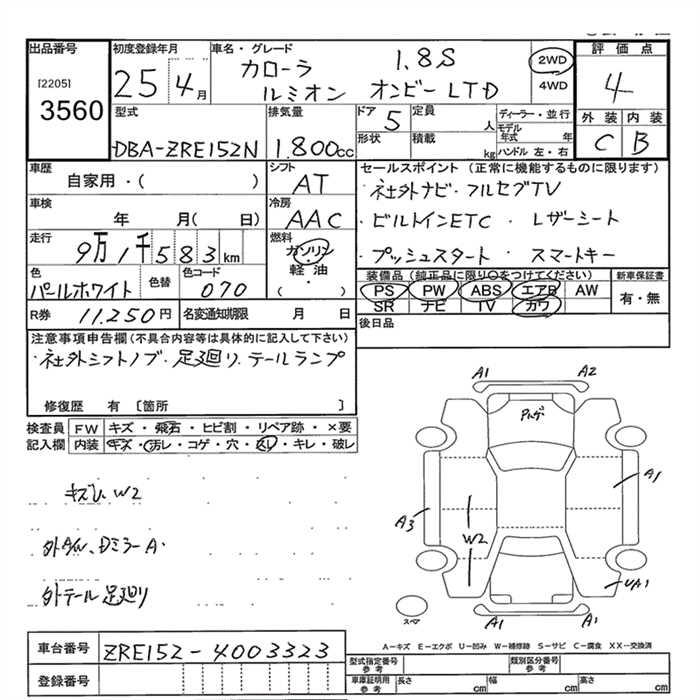 出品番号
[2205]
3560
初度登録年月
25 4月
車名・グレード
カローラ 1.8S
ルミオン オンビーLTD
2WD
4WD
評価点
4
外装 内装
C B
型式
DBA-ZRE152N
排気量
1.800cc
ドア 5
定員 人
形状
積載 kg
ディーラー・並行
モデル年式 年
ハンドル 左・右
車歴
自家用・( )
シフト
AT
車検
年 月( 日)
冷房
AAC
走行
9万1千583km
燃料
ガソリン
軽油
・
( )
色
パールホワイト
色替
色コード
070
R券 11,250円
名変通知期限 月 日
セールスポイント (正常に機能するものに限ります)
・社外ナビ・フルセグTV
・ビルトインETC ・レザーシート
・プッシュスタート・ スマートキー
装備品(純正品に限り○をつけてください)
PS PW ABS エアB AW
SR ナビ TV カワ
新車保証書
有・無
後日品
注意事項申告欄(不具合内容等は具体的に記入して下さい)
・社外シフトノブ・足廻リ、テールランプ
修復歴 有 [箇所 ]
検査員 FW キズ・飛石・ヒビ割・リペア跡・×要
記入欄 内装 キズ・汚レ・コゲ・穴・スレ・キレ・破レ
W2
外A/W、Dミラー A・
外テール 足廻り
A1 A2
A1
A3
W2
UA1
A1 A1
スペア
車台番号 ZRE152-4003323
登録番号
A－キズ E－エクボ U－凹み W－補修跡 S－サビ C－腐食 XX－交換済
型式指定番号
参考
類別区分番号
参考
車庫証明用
参考
長さ cm 幅 cm 高さ cm